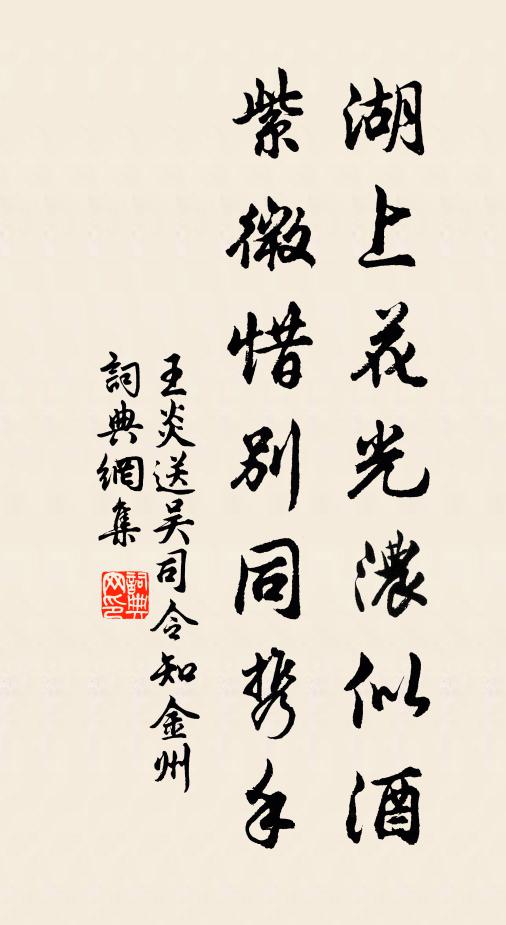 湖上花光濃似酒
紫微惜別同携手
王炎送吴司令知金州
詞典網集
詞典網印